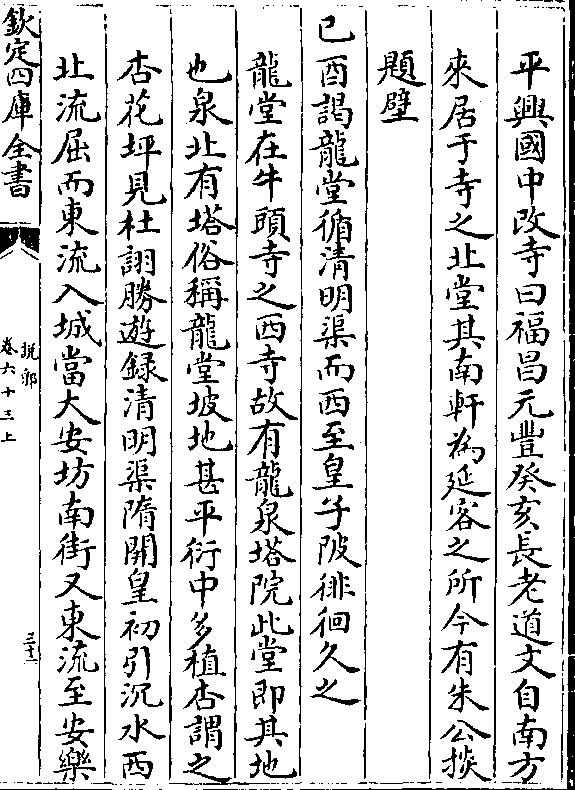 平興國中改寺曰福昌元豐癸亥長老道文自南方
來居于寺之北堂其南軒為延客之所今有朱公掞
題壁
已酉謁龍堂循清明渠而西至皇子陂徘徊久之
龍堂在牛頭寺之西寺故有龍泉塔院此堂即其地
也泉北有塔俗稱龍堂坡地甚平衍中多植杏謂之
杏花坪見杜詡勝遊録清明渠隋開皇初引沉水西
北流屈而東流入城當大安坊南街又東流至安樂
欽定四庫全書
説郛
卷六十三上
三十二